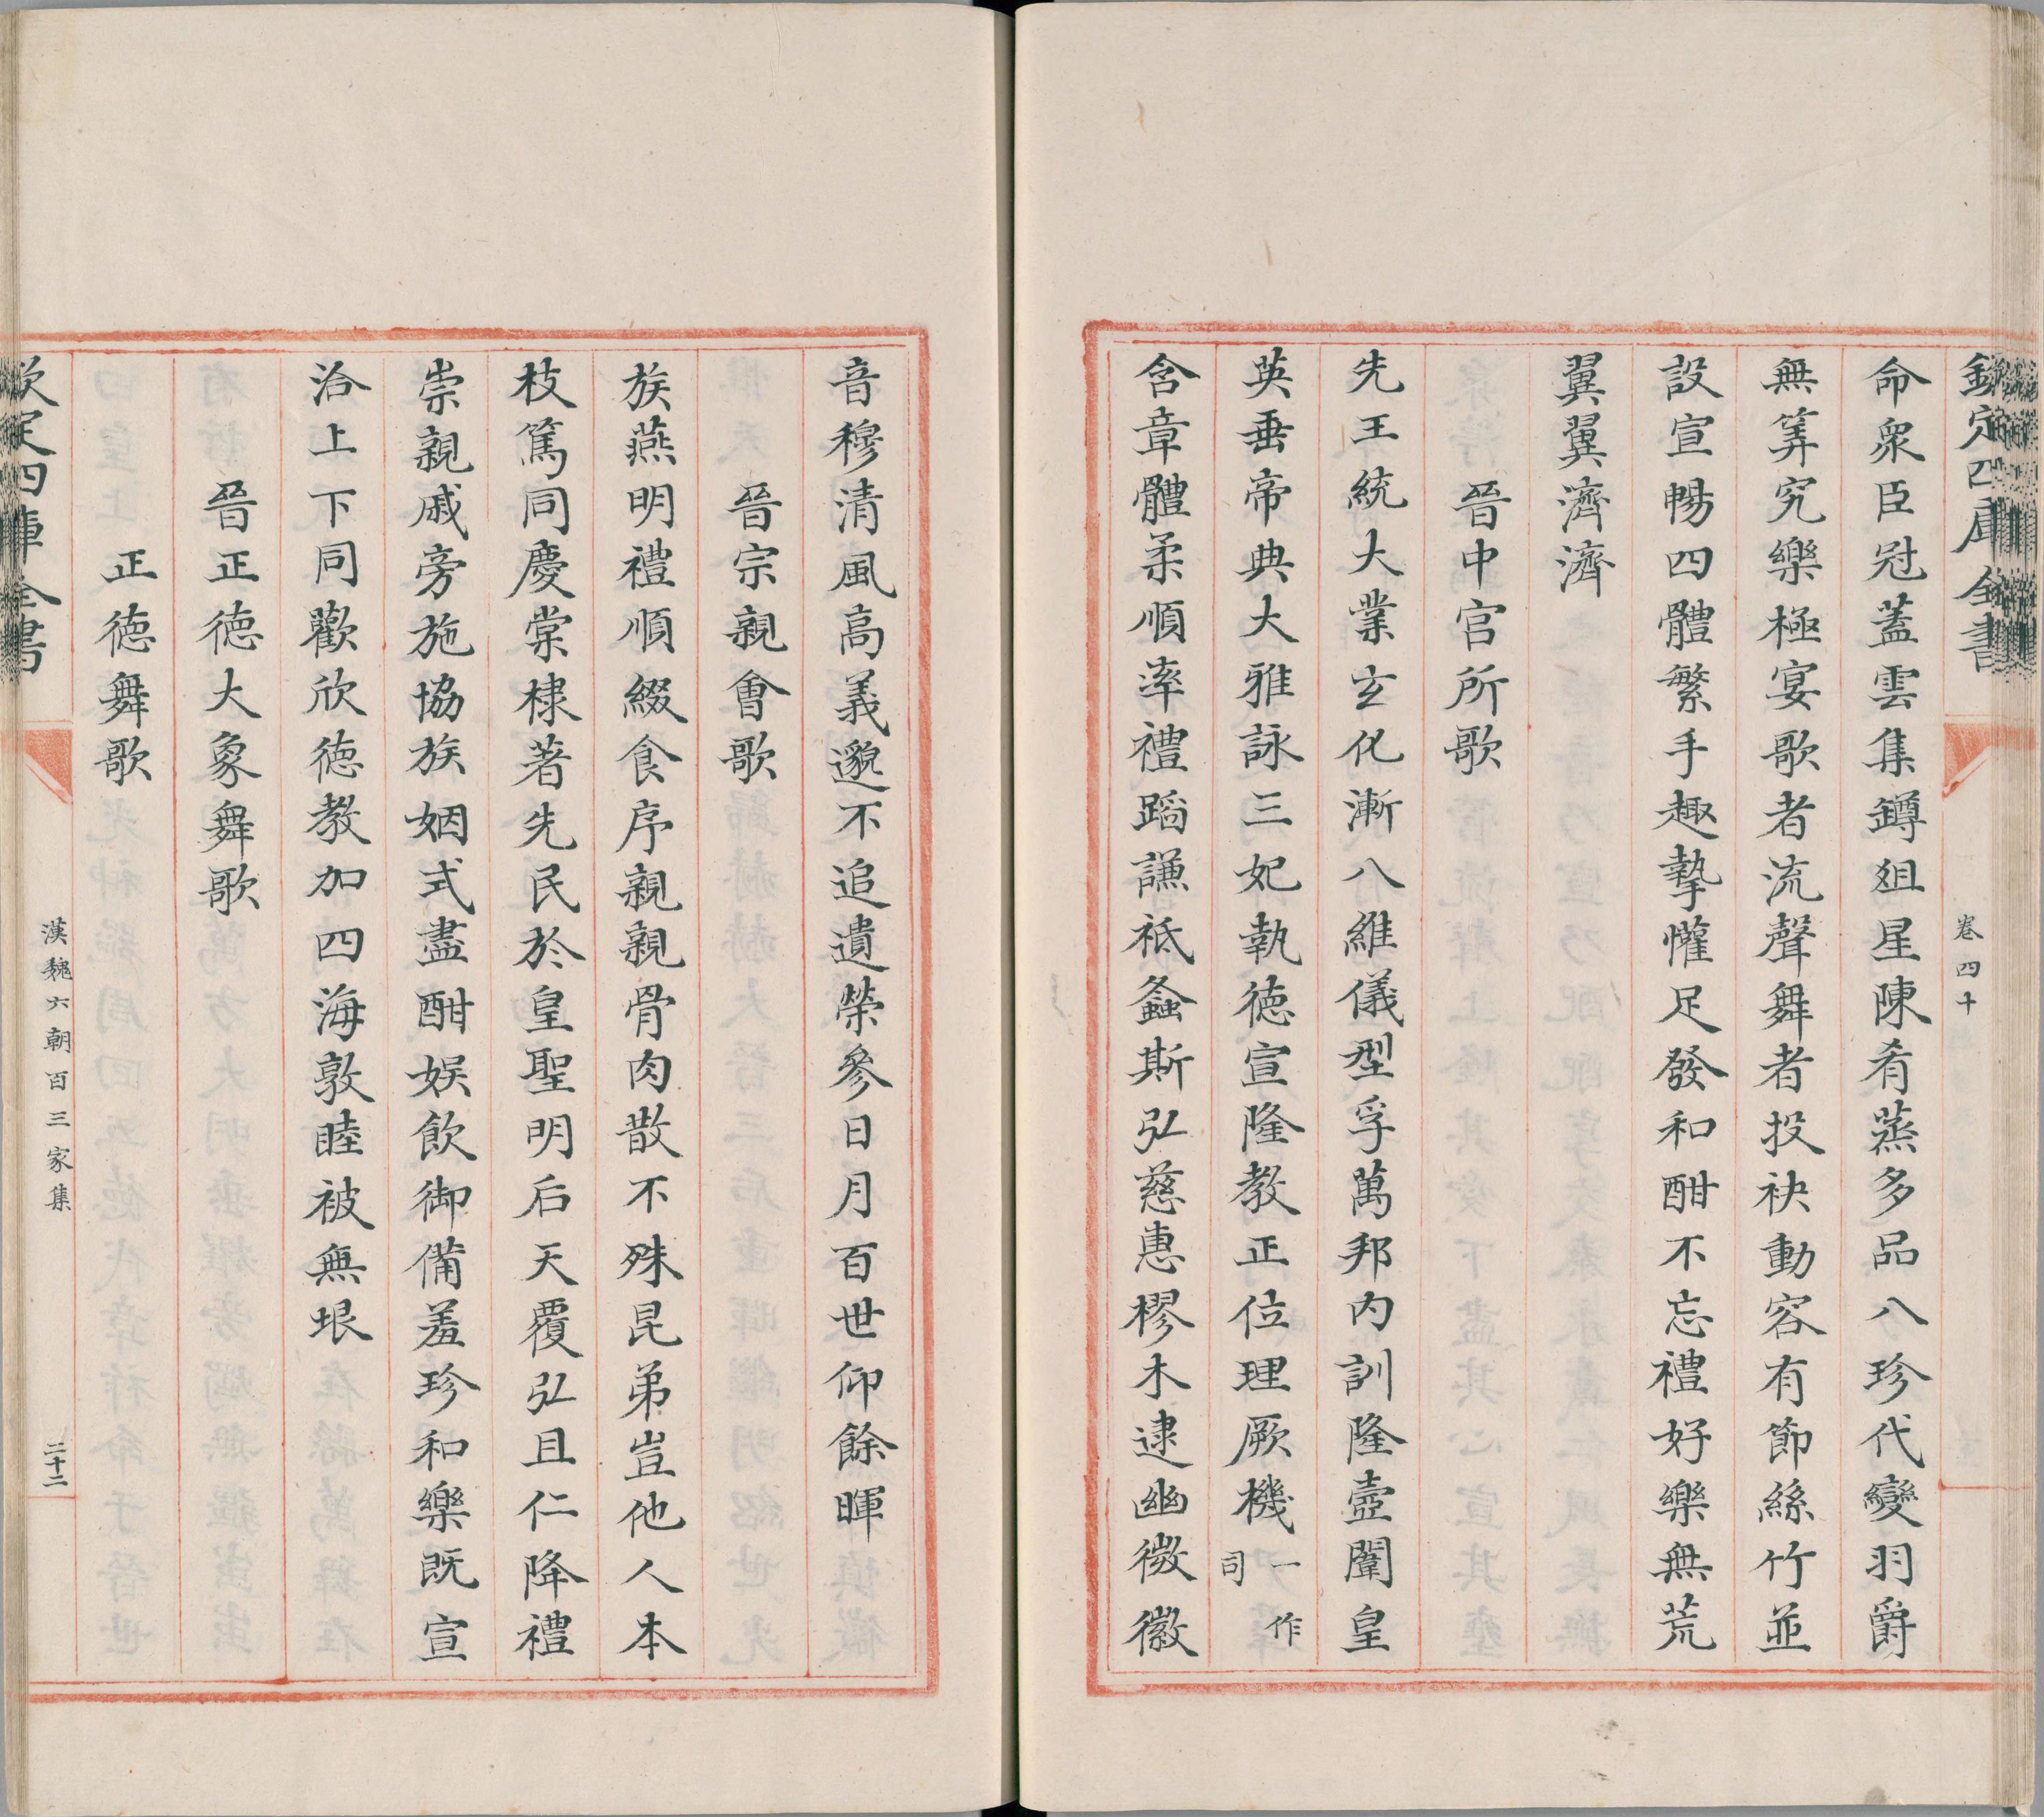 欽定四庫全書
卷四十
命衆臣冠蓋雲集鐏俎星陳肴蒸多品八珍代變羽爵
無筭究樂極宴歌者流聲舞者投袂動容有節絲竹並
設宣暢四體繁手趣摯懽足發和酣不忘禮好樂無荒
翼翼濟濟
晉中宮所歌
先王統大業玄化漸八維儀型孚萬邦内訓隆壼闈皇
英垂帝典大雅詠三妃執徳宣隆教正位理厥機一作司
含章體柔順率禮蹈謙祗螽斯弘慈惠樛木逮幽微徽
音穆清風高義邈不追遺榮參日月百世仰餘暉
晉宗親會歌
族燕明禮順綴食序親親骨肉散不殊昆弟豈他人本
枝篤同慶棠棣著先民於皇聖明后天覆弘且仁降禮
崇親戚旁施協族姻式盡酣娛飲御備羞珍和樂既宣
洽上下同歡欣徳教加四海敦睦被無垠
晉正徳大象舞歌
正徳舞歌
欽定四庫全書
漢魏六朝百三家集
二十二